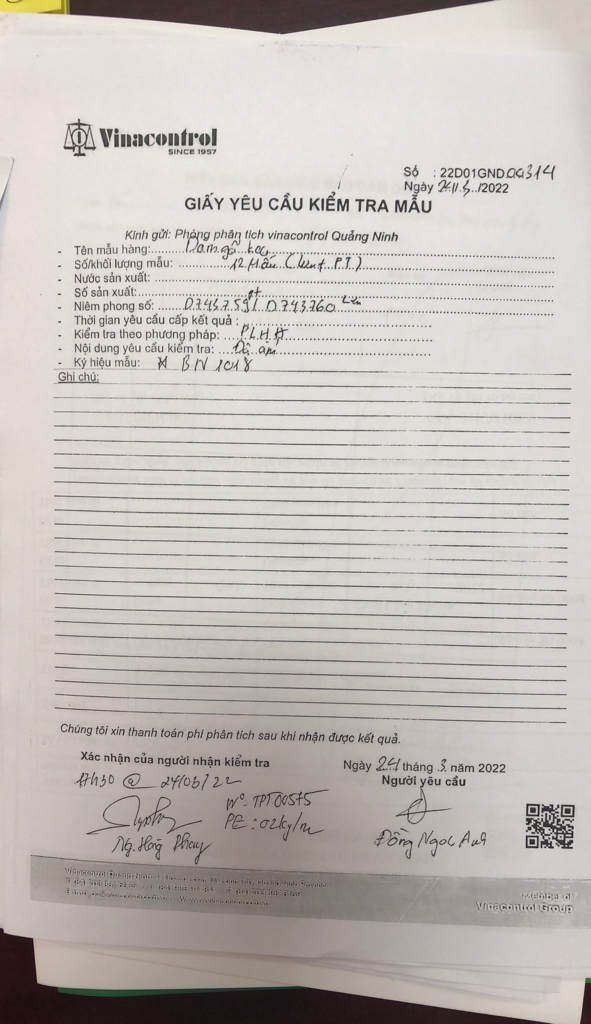 Vinacontrol
SINCE 1957
Số : 22D01GND00314
Ngày 24/.3../2022
GIẤY YÊU CẦU KIỂM TRA MẪU
Kính gửi: Phòng phân tích vinacontrol Quảng Ninh
- Tên mẫu hàng: Dăm gỗ keo
- Số/khối lượng mẫu: 12 Mẫu
- Nước sản xuất:
- Số sản xuất:
- Niêm phong số: D743759/ D743760
- Thời gian yêu cầu cấp kết quả :
- Kiểm tra theo phương pháp: PLHH
- Nội dung yêu cầu kiểm tra: Độ ẩm
- Ký hiệu mẫu: BN 1018
Ghi chú:
Chúng tôi xin thanh toán phí phân tích sau khi nhận được kết quả.
Xác nhận của người nhận kiểm tra
17h30 @ 24/03/22
Nº: TPT00575
PE: 02ky/m
Ng. Hồng
Ngày 24 tháng .3. năm 2022
Người yêu cầu
Đồng Ngọc Anh
Member of
Vinacontrol Group